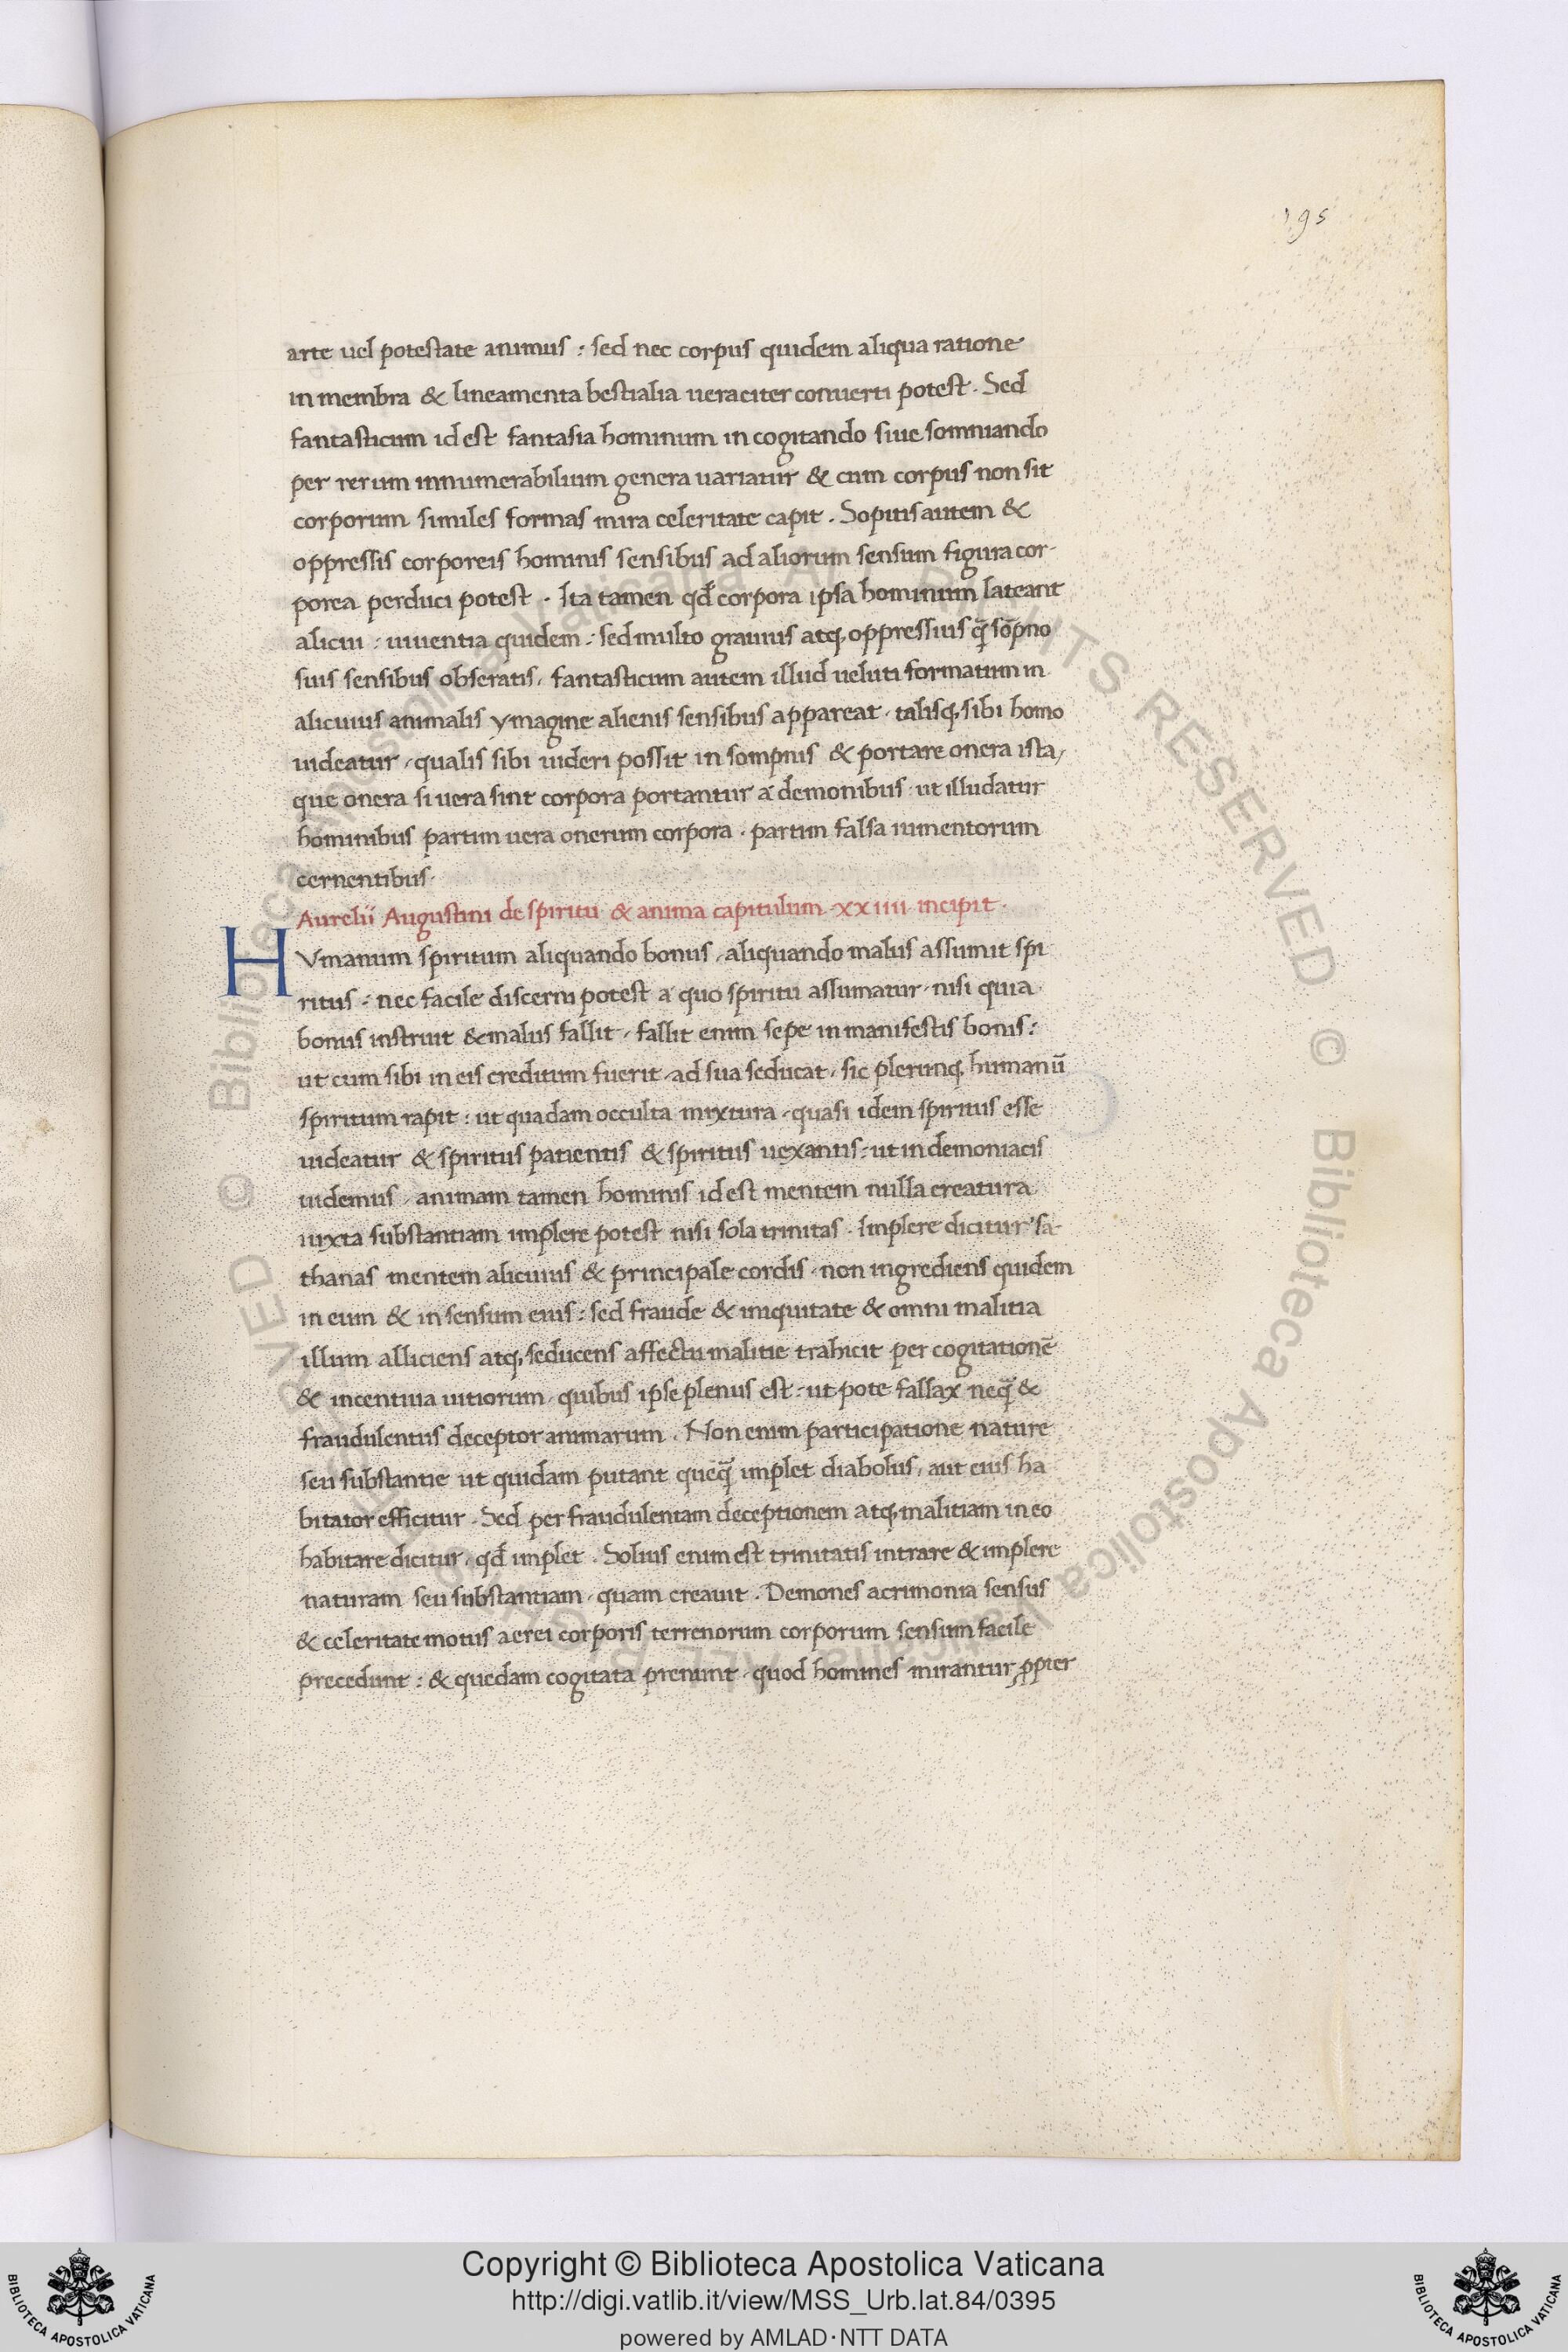 195
arte uel potestate animus : sed nec corpus quidem aliqua ratione
in membra & lineamenta bestialia ueraciter conuerti potest . Sed
fantasticum id est fantasia hominum in cogitando siue somniando
per rerum innumerabilium genera uariatur & cum corpus non sit
corporum similes formas mira celeritate capit . Sopitis autem &
oppressis corporeis hominis sensibus ad aliorum sensum figura cor-
porea perduci potest . Ita tamen qđ corpora ipsa hominum lateant
alicui : uiuentia quidem : sed multo grauius atq, oppressius q̃ sōpno
suis sensibus obseratis, fantasticum autem illud ueluti formatum in
alicuius animalis ymagine alienis sensibus appareat, talisq, sibi homo
uideatur, qualis sibi uideri possit in sompnis & portare onera ista,
que onera si uera sint corpora portantur a demonibus ut illudatur
hominibus partim uera onerum corpora . partim falsa iumentorum
cernentibus.
Aurelii Augustini de spiritu & anima capitulum xxiiii incipit .
HVmanum spiritum aliquando bonus, aliquando malus assumit spi
ritus : nec facile discerni potest a quo spiritu assumatur, nisi quia
bonus instruit & malus fallit, fallit enim sepe in manifestis bonis :
ut cum sibi in eis creditum fuerit, ad sua seducat, sic plerunq, humanū
spiritum rapit : ut quadam occulta mixtura, quasi idem spiritus esse
uideatur & spiritus patientis & spiritus uexantis : ut in demoniacis
uidemus, animam tamen hominis id est mentem nulla creatura
iuxta substantiam implere potest nisi sola trinitas . Implere dicitur sa-
thanas mentem alicuius & principale cordis, non ingrediens quidem
in eum & in sensum eius : sed fraude & iniquitate & omni malitia
illum alliciens atq, seducens affectu malitie trahicit per cogitationē
& incentiua uitiorum, quibus ipse plenus est : ut pote fallax neq̃ &
fraudulentus deceptor animarum . Non enim participatione nature
seu substantie ut quidam putant queq̃ implet diabolus, aut eius ha
bitator efficitur . Sed per fraudulentam deceptionem atq, malitiam in eo
habitare dicitur, qđ implet . Solius enim est trinitatis intrare & implere
naturam seu substantiam, quam creauit . Demones acrimonia sensus
& celeritate motus aerei corporis terrenorum corporum sensum facile
precedunt : & quedam cogitata prenunt, quod homines mirantur ꝓpter
Copyright © Biblioteca Apostolica Vaticana
http://digi.vatlib.it/view/MSS_Urb.lat.84/0395
powered by AMLAD·NTT DATA